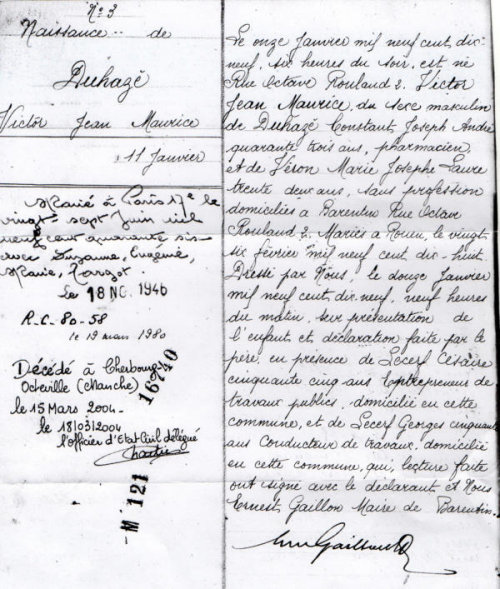 N° 3
Naissance de
Duhazé
Victor Jean Maurice
11 Janvier
Marié à Paris 17e le
vingt-sept Juin mil
neuf cent quarante six
avec Suzanne, Eugénie,
Marie, Margot.
Le 18 NO. 1946
R.C. 80-58
le 19 mars 1980
16740
Décédé à Cherbourg-
Octeville (Manche)
le 15 Mars 2004-
le 18/03/2004
l'officier d'Etat Civil délégué
M 121
Le onze Janvier mil neuf cent dix-
neuf, six heures du soir, est né
Rue Octave Rouland 2. Victor
Jean Maurice, du sexe masculin
de Duhazé Constant Joseph André
quarante trois ans, pharmacien
et de Véron Marie Josephe Laure
trente deux ans, sans profession
domiciliés à Barentin Rue Octave
Rouland 2. Mariés à Rouen, le vingt
six février mil neuf cent dix-huit.
Dressé par Nous, le douze Janvier
mil neuf cent dix-neuf, neuf heures
du matin, sur présentation de
l'enfant et déclaration faite par le
père, en présence de Lecerf Césaire
cinquante cinq ans Entrepreneur de
travaux publics, domicilié en cette
commune, et de Lecerf Georges cinquante
ans Conducteur de travaux, domicilié
en cette commune, qui, lecture faite
ont signé avec le déclarant et Nous
Ernest Gaillon Maire de Barentin.